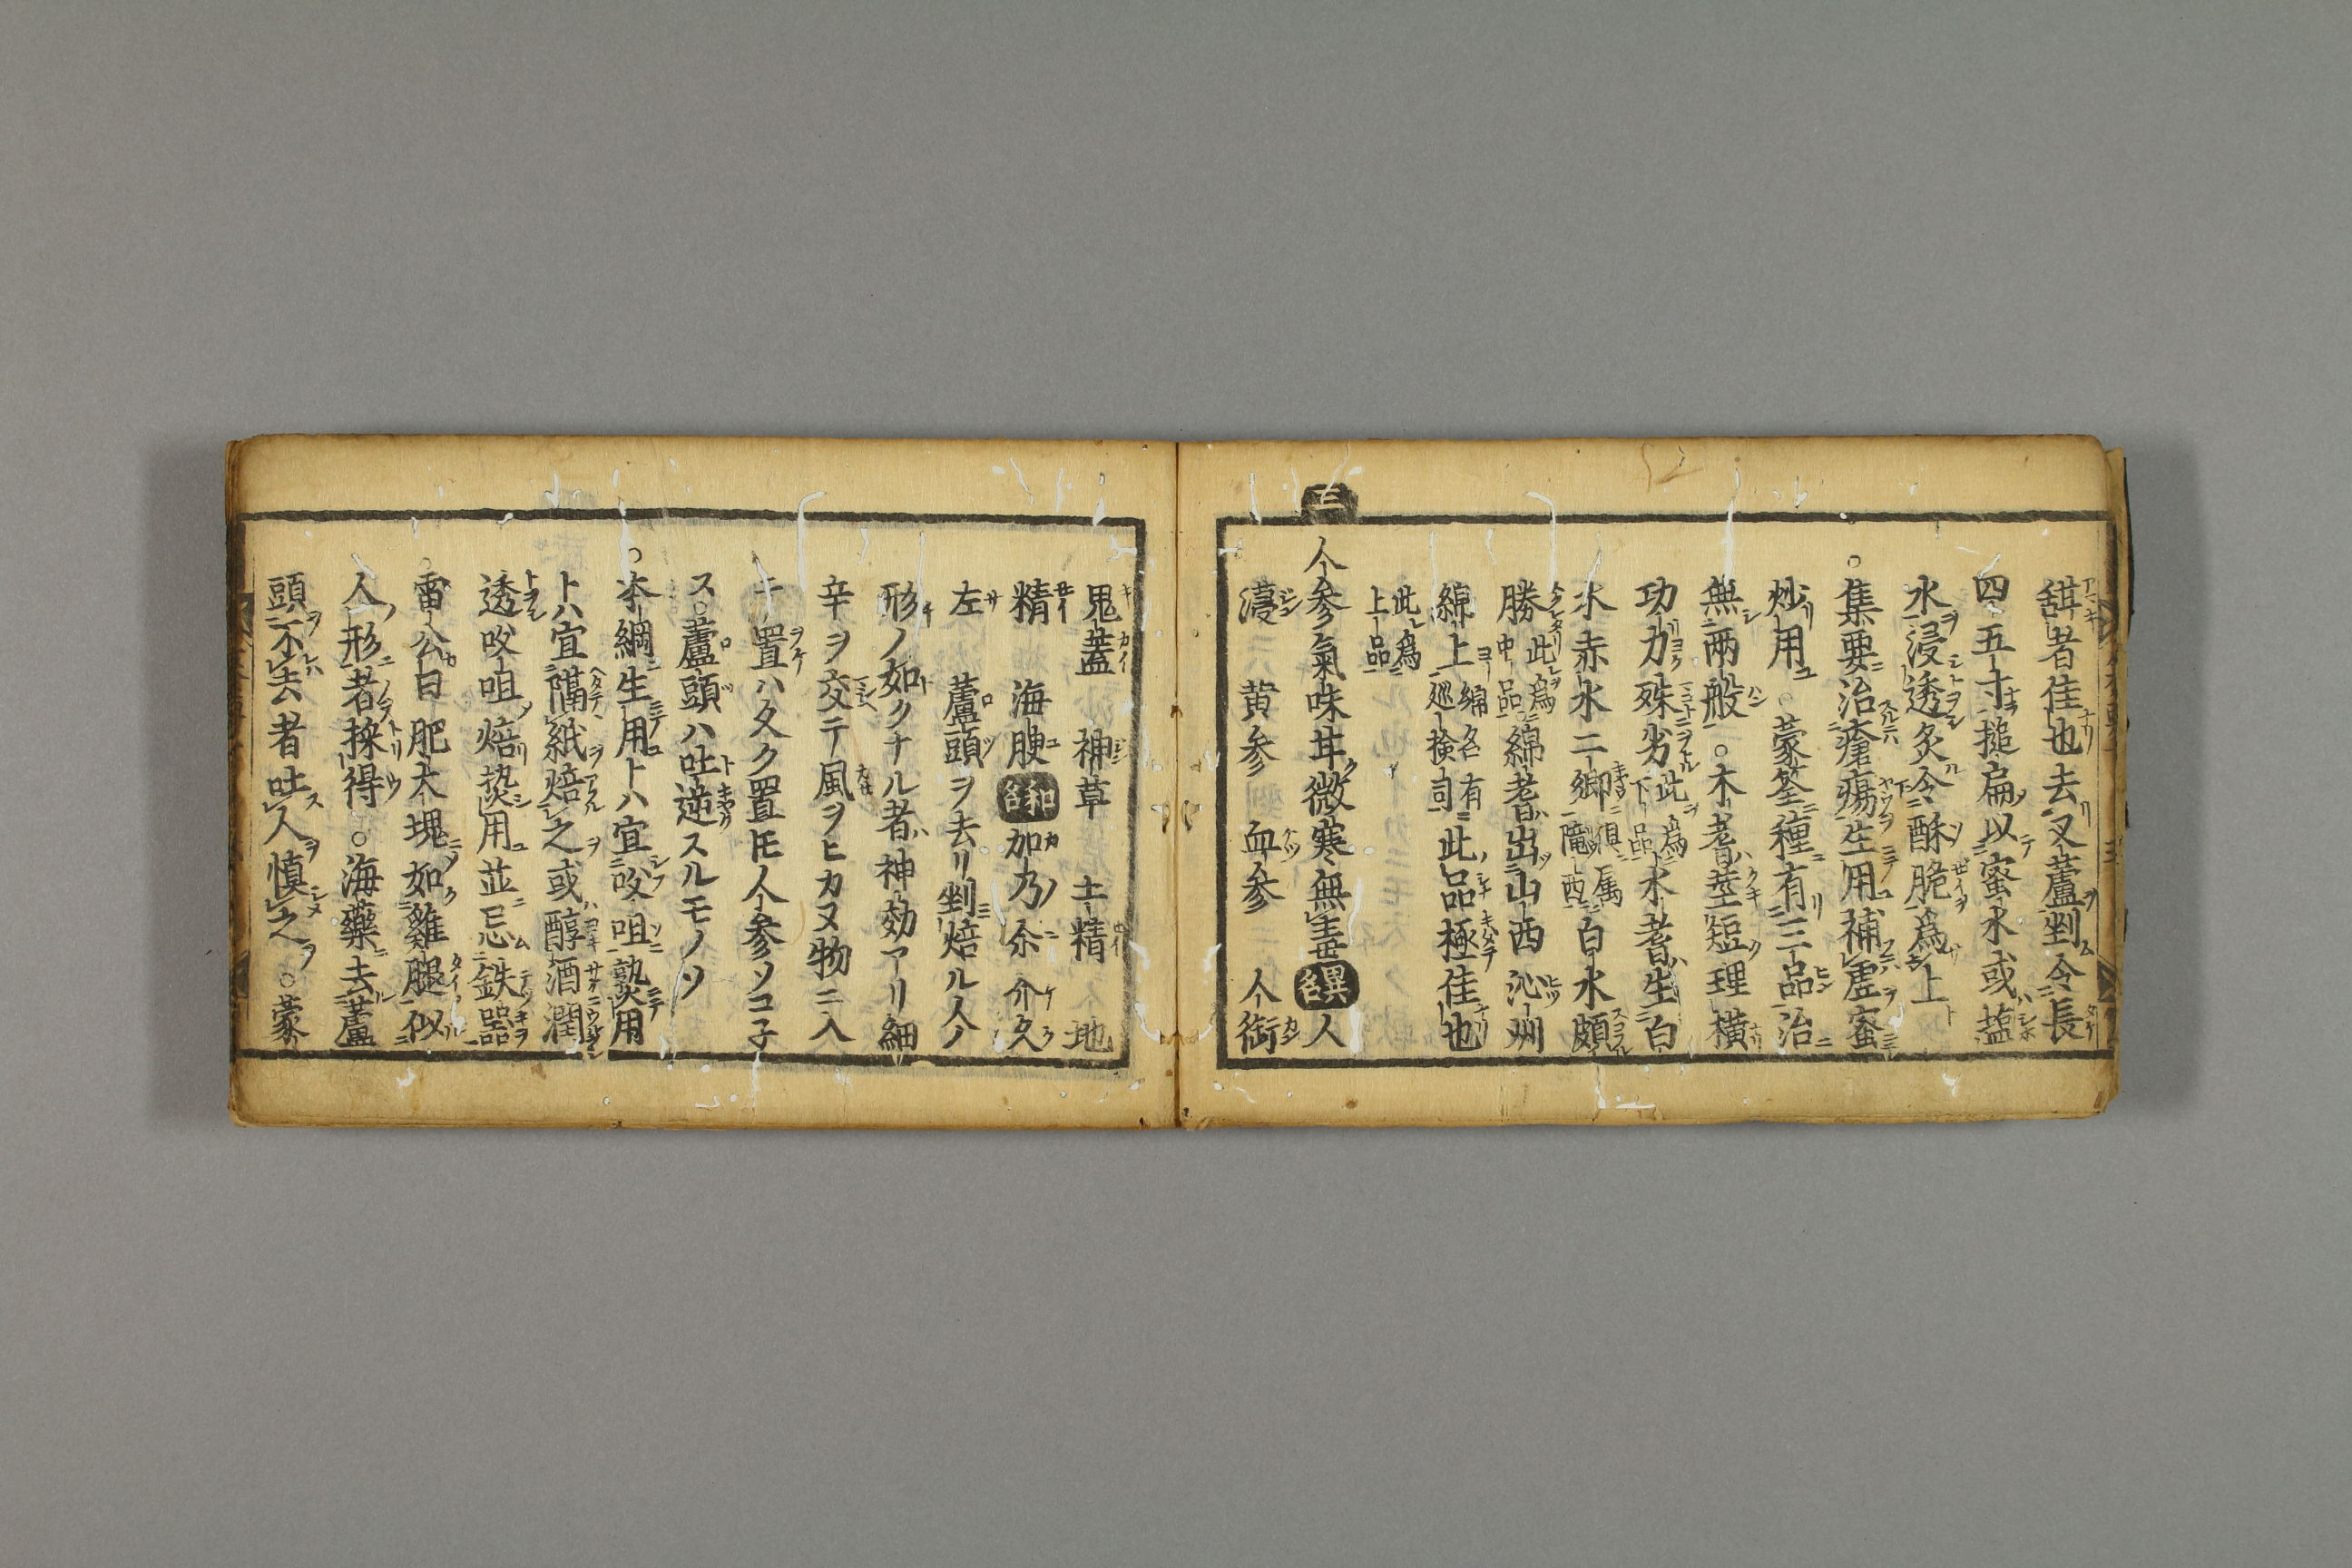 甜者佳也去又蘆剉令長
四五寸搥扁以蜜水或塩
水浸透炙令酥脆為上
○集要治瘡瘍生用補虚蜜
炒用○蒙筌種有三品治
無兩般○木耆莖短理横
功力殊劣此為下品水耆生白
水赤水二郷俱属隴西白水頗
勝此為中品綿耆出山西沁州
綿上綿名有巡検司此品極佳也
此為上品
三
人参氣味甘微寒無毒異名人
薓 黄参 血参 人銜
鬼蓋 神草 土精 地
精 海腴 和名 加乃尓介久
左 蘆頭ヲ去リ剉焙ル人ノ
形ノ如クナル者神効アリ細
辛ヲ交テ風ヲヒカヌ物ニ入
テ置ハ久ク置モ人参ソコ子
ス○蘆頭ハ吐逆スルモノソ
○本綱生用トハ宜㕮咀熟用
トハ宜隔紙焙之或醇酒潤
透㕮咀焙熱用並忌鉄器
○雷公曰肥大塊如雞腿似
人形者採得○海藥去蘆
頭不去者吐人慎之○蒙